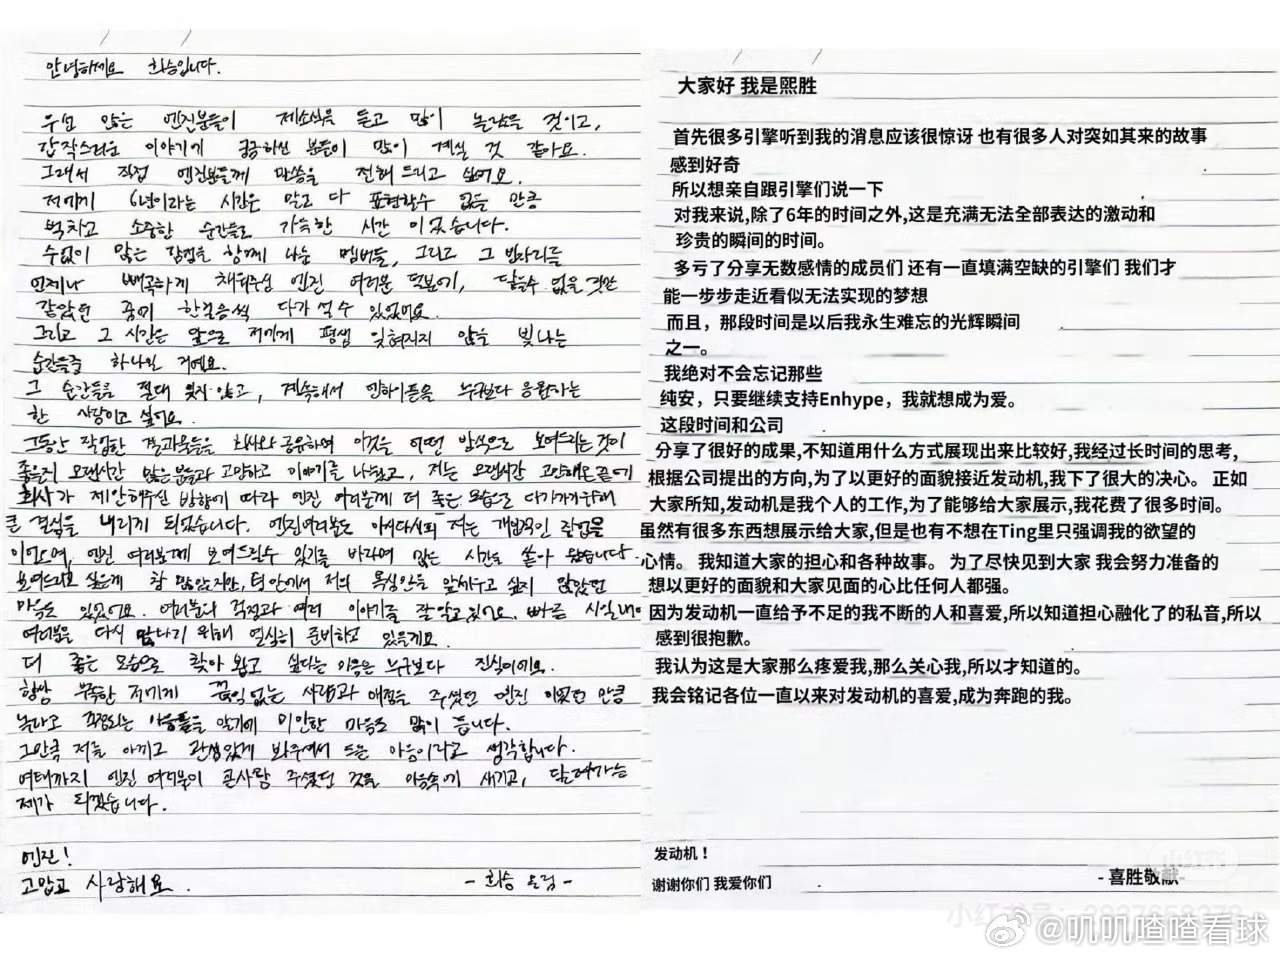 안녕하세요 희승입니다.
우선 많은 엔진분들이 제소식을 듣고 많이 놀랐을 것이고,
갑작스러운 이야기에 궁금하신 분들이 많이 계실 것 같아요.
그래서 직접 엔진분들께 말씀을 전해드리고 싶어요.
저에게 6년이라는 시간은 말로 다 표현할수 없을 만큼
벅차고 소중한 순간들로 가득한 시간 이었습니다.
수없이 많은 감정을 함께 나눈 멤버들, 그리고 그 빈자리를
언제나 빼곡하게 채워주신 엔진 여러분 덕분에, 닿을수 없을 것만
같았던 꿈에 한걸음씩 다가 설 수 있었어요.
그리고 그 시간은 앞으로 저에게 평생 잊혀지지 않을 빛나는
순간들중 하나일 거예요.
그 순간들을 절대 잊지 않고, 계속해서 엔하이픈을 누구보다 응원하는
한 사람이고 싶어요.
그동안 작업한 결과물들을 회사와 공유하며 이것을 어떤 방식으로 보여드리는것이
좋을지 오랜시간 많은분들과 고민하고 이야기를 나눴고, 저는 오랜시간 고민해온 끝에
회사가 제안해주신 방향에 따라 엔진 여러분께 더 좋은 모습으로 다가가기위해
큰 결심을 내리게 되었습니다. 엔진여러분도 아시다시피 저는 개인적인 작업을
이어오며, 엔진 여러분께 보여드릴수 있기를 바라며 많은 시간을 쏟아 왔습니다.
보여드리고 싶은게 참 많았지만, 팀 안에서 저의 욕심만을 앞세우고 싶지 않았던
마음도 있었어요. 여러분의 걱정과 여러 이야기를 잘 알고있어요. 빠른 시일내에
여러분을 다시 만나기 위해 열심히 준비하고 있을게요.
더 좋은 모습으로 찾아 뵙고 싶다는 마음은 누구보다 진심이에요.
항상 부족한 저에게 끊임없는 사랑과 애정을 주셨던 엔진 이었던 만큼
놀라고 걱정되는 마음들을 알기에 미안한 마음도 많이 듭니다.
그만큼 저를 아끼고 관심있게 봐주셔서 드는 마음이라고 생각합니다.
여태까지 엔진 여러분이 큰사랑 주셨던 것을 마음속에 새기고, 달려가는
제가 되겠습니다.
엔진!
고맙고 사랑해요.
- 희승 드림 -
大家好 我是熙胜
首先很多引擎听到我的消息应该很惊讶 也有很多人对突如其来的故事
感到好奇
所以想亲自跟引擎们说一下
对我来说,除了6年的时间之外,这是充满无法全部表达的激动和
珍贵的瞬间的时间。
多亏了分享无数感情的成员们 还有一直填满空缺的引擎们 我们才
能一步步走近看似无法实现的梦想
而且，那段时间是以后我永生难忘的光辉瞬间
之一。
我绝对不会忘记那些
纯安，只要继续支持Enhype，我就想成为爱。
这段时间和公司
分享了很好的成果,不知道用什么方式展现出来比较好,我经过长时间的思考,
根据公司提出的方向,为了以更好的面貌接近发动机,我下了很大的决心。 正如
大家所知,发动机是我个人的工作,为了能够给大家展示,我花费了很多时间。
虽然有很多东西想展示给大家,但是也有不想在Ting里只强调我的欲望的
心情。 我知道大家的担心和各种故事。 为了尽快见到大家 我会努力准备的
想以更好的面貌和大家见面的心比任何人都强。
因为发动机一直给予不足的我不断的人和喜爱,所以知道担心融化了的私音,所以
感到很抱歉。
我认为这是大家那么疼爱我,那么关心我,所以才知道的。
我会铭记各位一直以来对发动机的喜爱,成为奔跑的我。
发动机！
谢谢你们 我爱你们
- 喜胜敬献-
小红书
@叽叽喳喳看球